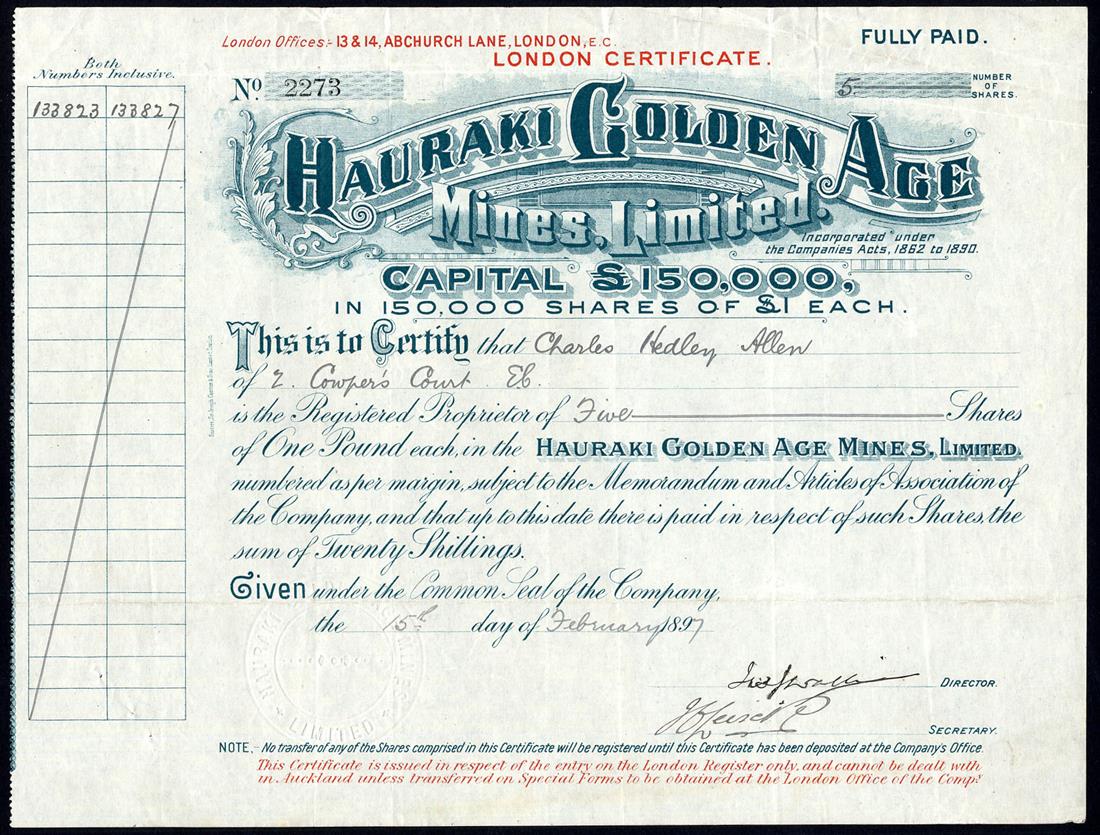 London Offices:- 13 & 14, ABCHURCH LANE, LONDON, E.C.
FULLY PAID.
LONDON CERTIFICATE.
Both
Numbers Inclusive.
133823 133827
No 2273
5
NUMBER
OF
SHARES.
HAURAKI GOLDEN AGE
Mines, Limited.
Incorporated under
the Companies Acts, 1862 to 1890.
CAPITAL £150,000,
IN 150,000 SHARES OF £1 EACH.
This is to Certify that Charles Hedley Allen
of 2. Cowper's Court EC.
is the Registered Proprietor of Five Shares
of One Pound each, in the HAURAKI GOLDEN AGE MINES, LIMITED.
numbered as per margin, subject to the Memorandum and Articles of Association of
the Company, and that up to this date there is paid in respect of such Shares, the
sum of Twenty Shillings.
Given under the Common Seal of the Company,
the 15th day of February 1897
HAURAKI
LIMITED
DIRECTOR.
SECRETARY.
NOTE,- No transfer of any of the Shares comprised in this Certificate will be registered until this Certificate has been deposited at the Company's Office.
This Certificate is issued in respect of the entry on the London Register only, and cannot be dealt with
in Auckland unless transferred on Special Forms to be obtained at the London Office of the Compy.